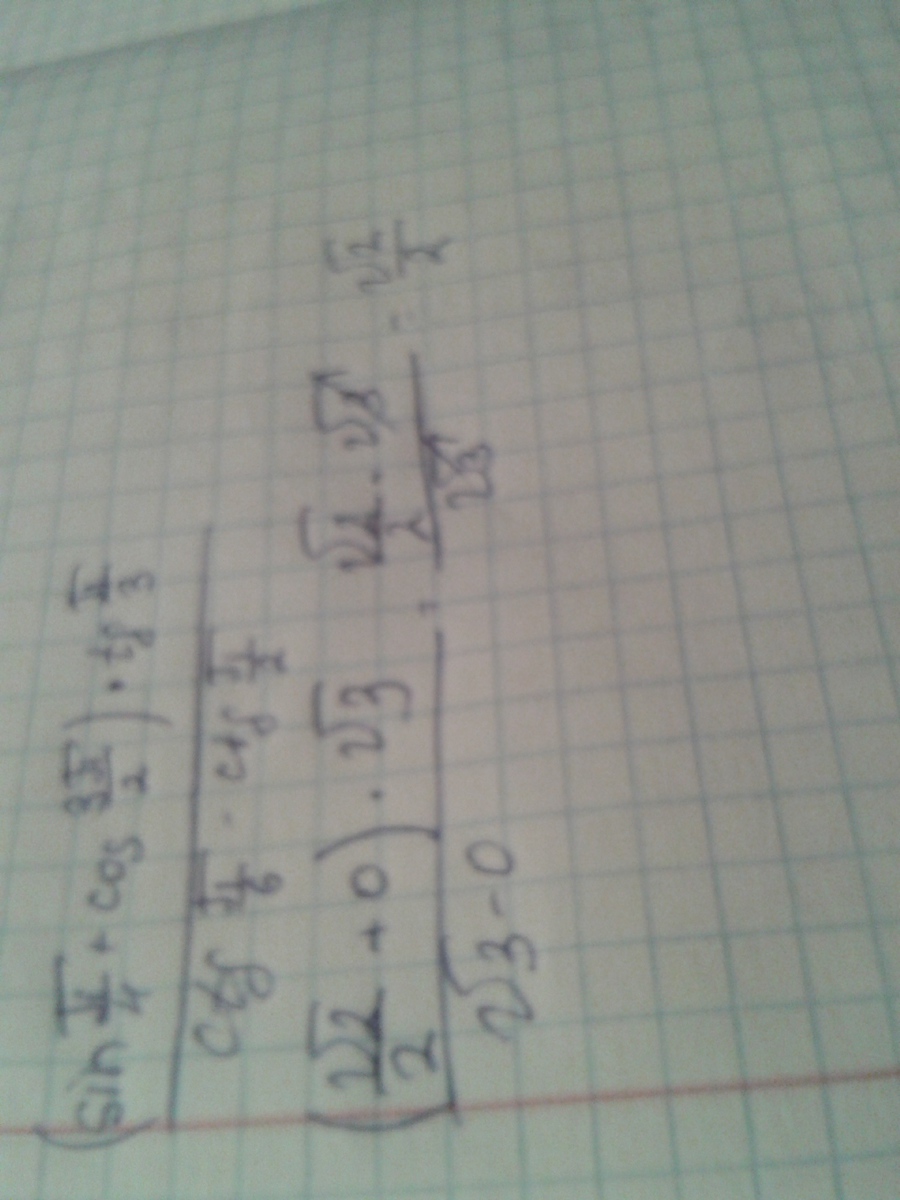 (sin π/4 + cos 3π/2) · tg π/3
ctg π/6 - ctg π/2
(√2/2 + 0) · √3 = √2/2 · √3 = √2/2
√3 - 0 √3